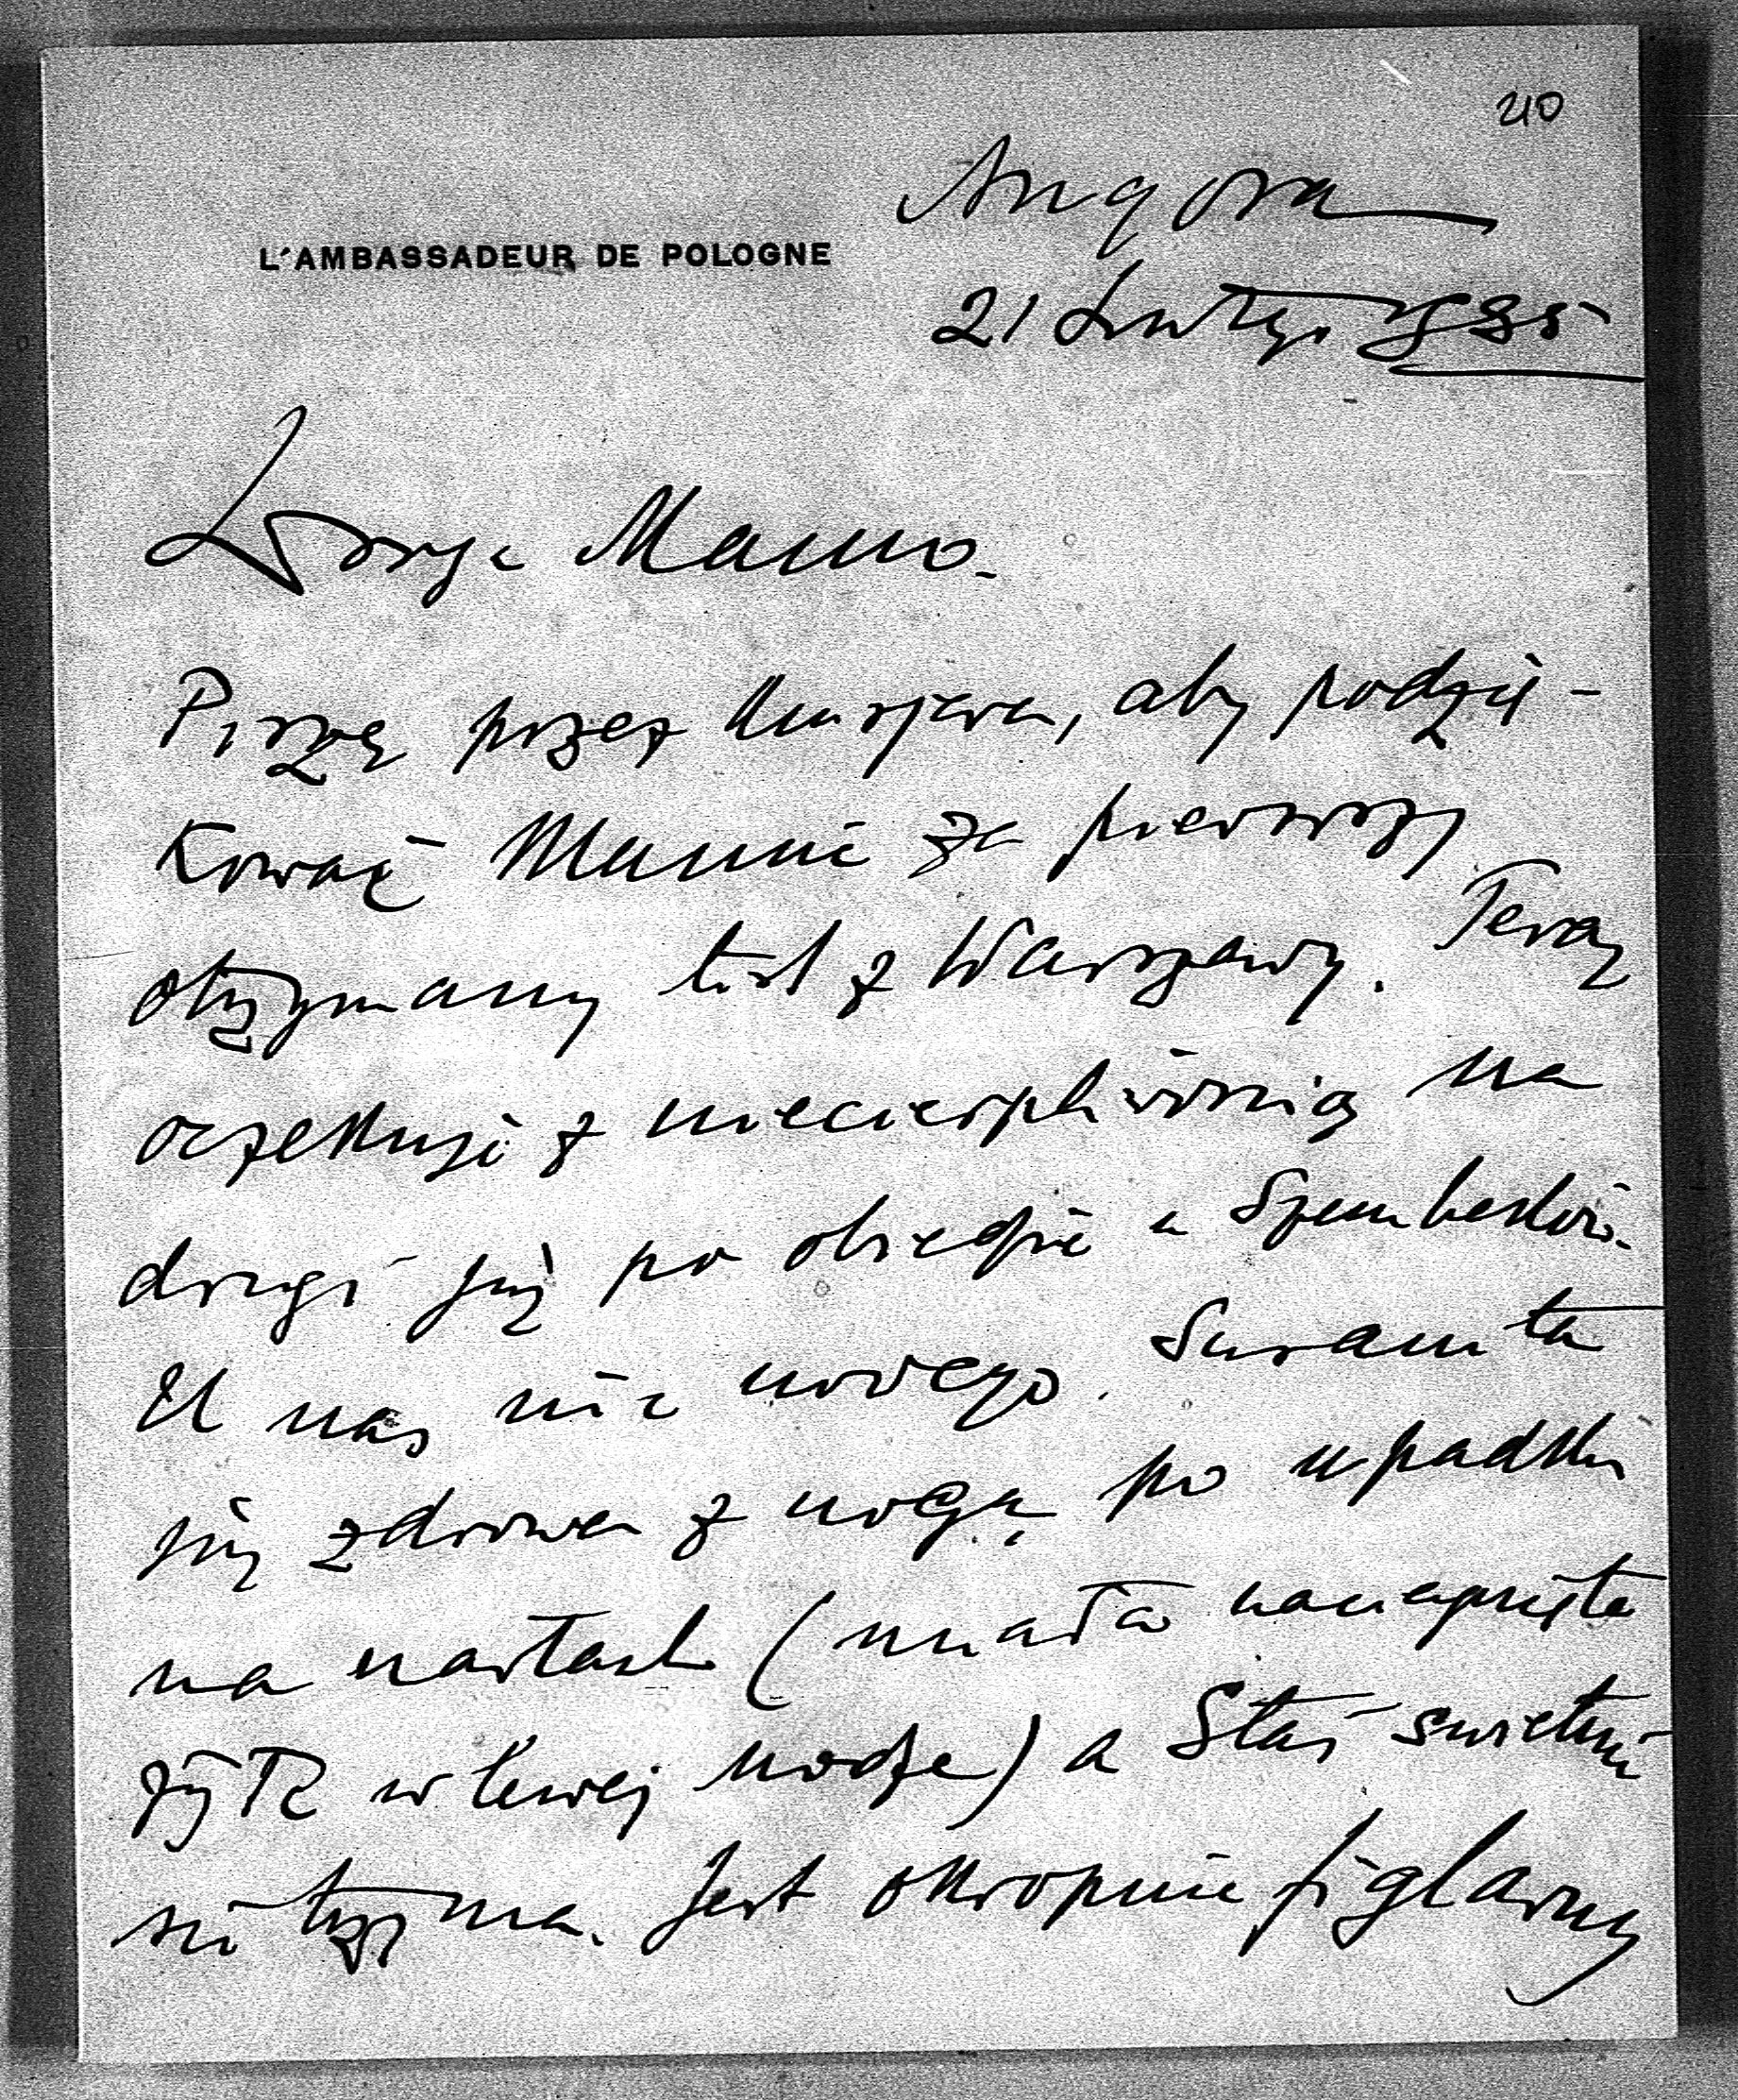 210
Angora
L'AMBASSADEUR DE POLOGNE
21 Lutego 1935
Droga Mamo.
Piszę przez kurjera, aby podzię-
kować Mamie za pierwszy
otrzymany list z Warszawy. Teraz
oczekuję z niecierpliwością na
drugi już po obiedzie u Szembeków.
U nas nic nowego. ta
już zdrowa z nogą po upadku
na nartach (miała naciągniętą
żyłę w lewej nodze) a Staś świetnie
się trzyma. Jest okropnie figlarny